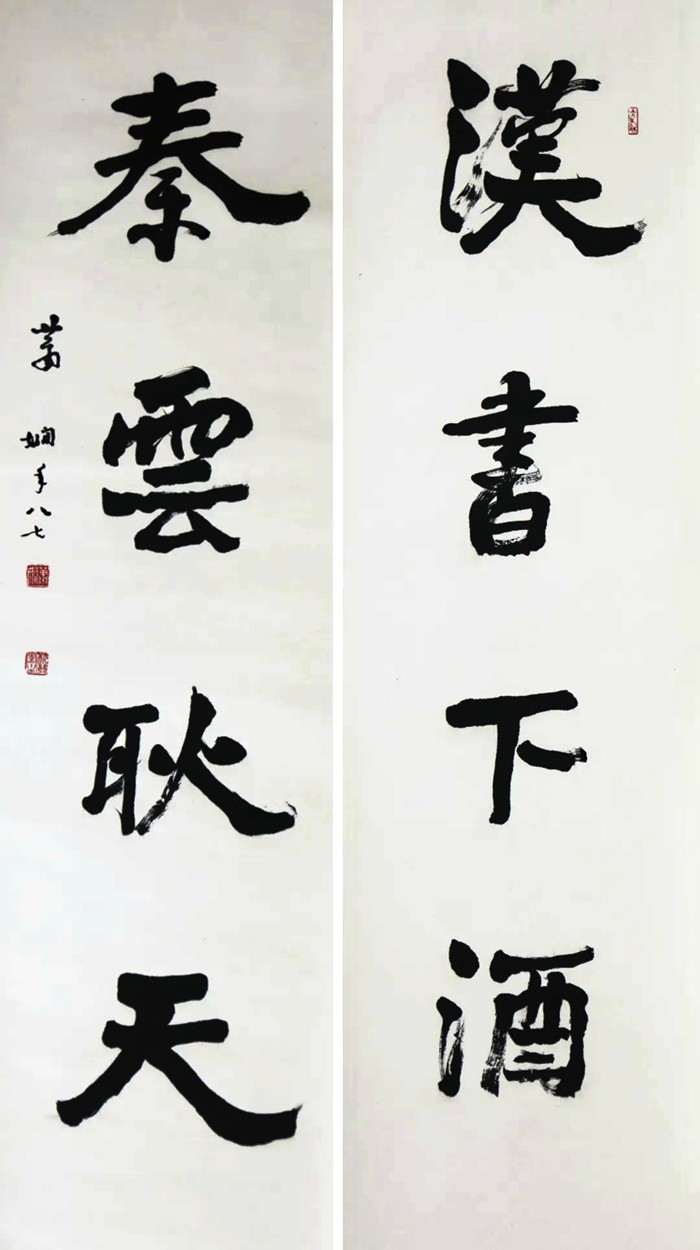 漢書下酒
秦雲耿天
蕭嫻年八七